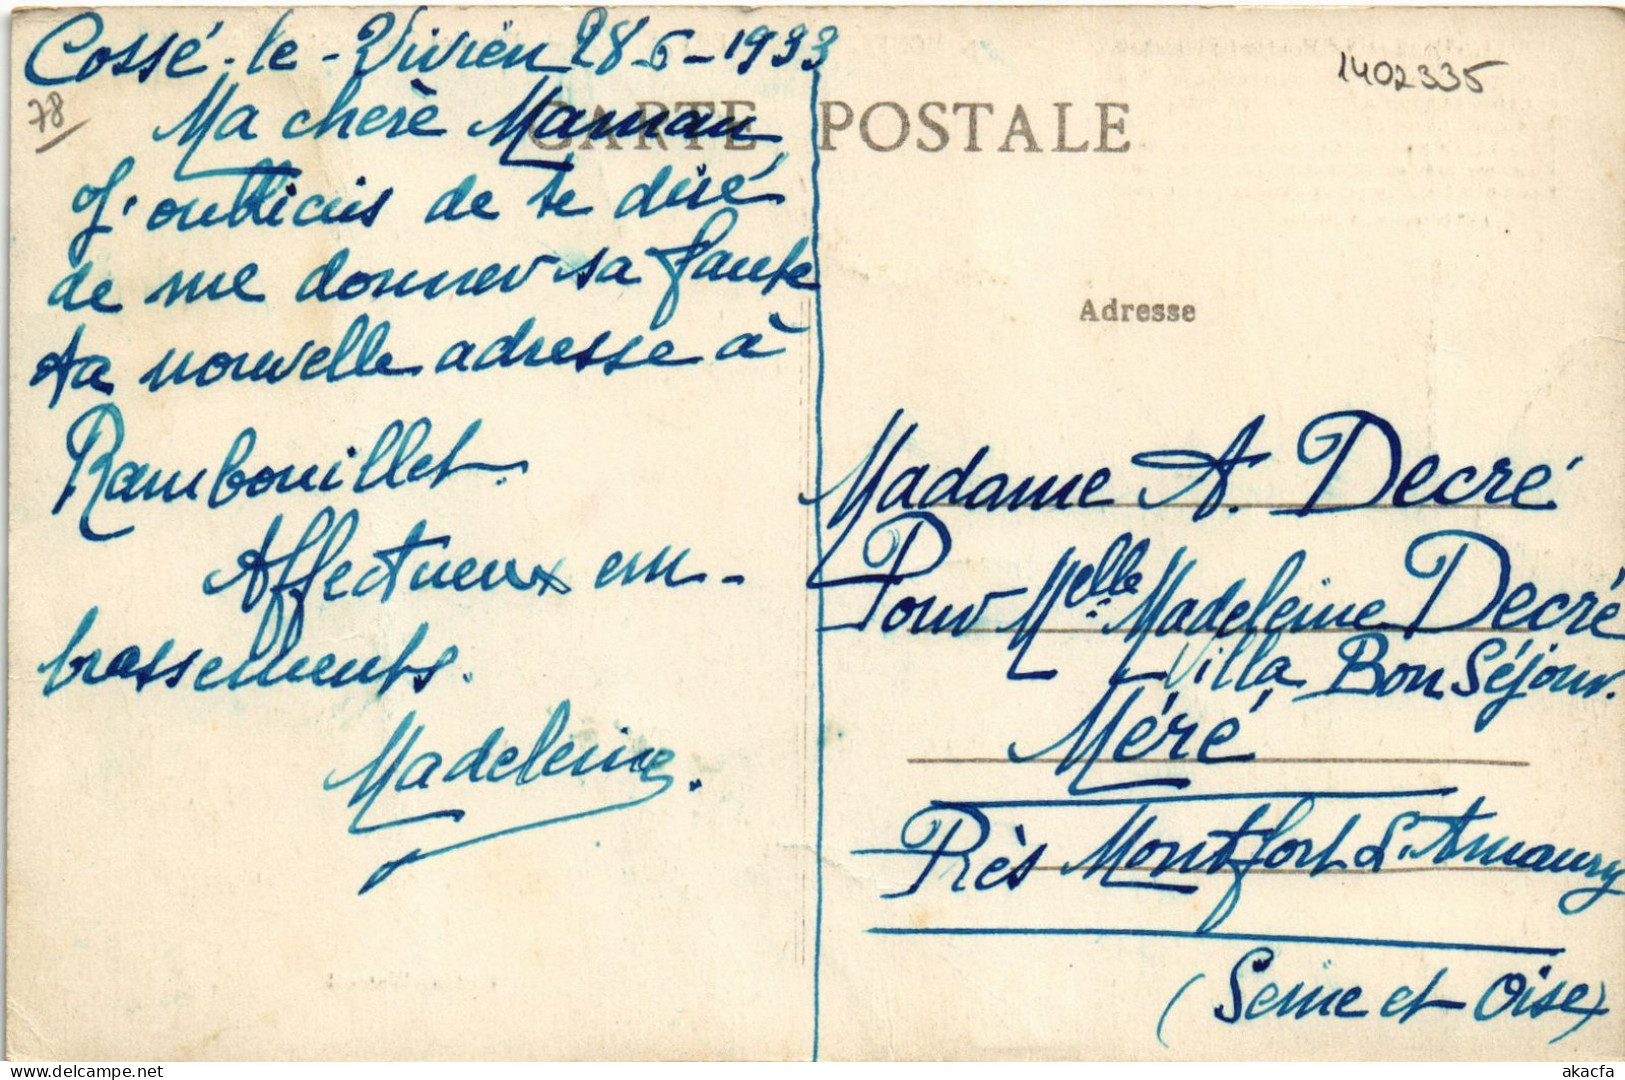 Cossé-le-Vivien 28-6-1933
78
Ma chère Maman
J'oubliais de te diré
de me donner sa faute
ta nouvelle adresse à
Rambouillet.
Affectueux em-
brassements.
Madeleine.
1402335
CARTE POSTALE
Adresse
Madame A. Decré
Pour Melle Madeleine Decré
Villa Bon Séjour.
Méré
Près Montfort L'Amaury
(Seine et Oise)
delcampe.net
akacfa